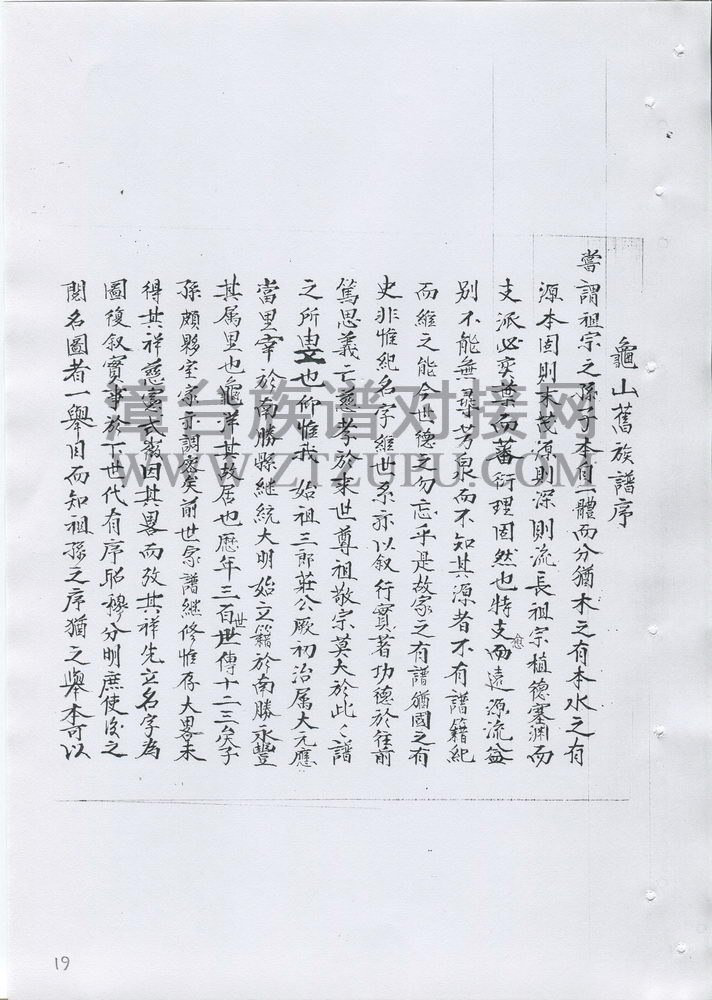 龜山舊族譜序
嘗謂祖宗之孫子本自一體而分猶木之有本水之有
源本固則末茂源則深則流長祖宗植德塞淵而
支派必奕葉而蕃衍理固然也特支而愈遠源流益
別不能無尋芳泉而不知其源者不有譜籍紀
而維之能令世德之勿忘乎是故家之有譜猶國之有
史非惟紀名字維世系亦以叙行實著功德於徃前
篤思義亡慈孝於來世尊祖敬宗莫大於此々譜
之所由文也仰惟我始祖三郎莊公厥初治属大元應
當里宰於南勝縣継統大明始立籍於南勝永豐
其属里也龜洋其故居也歷年三百世世傳十二三矣子
孫頗夥室家亦調密矣前世家譜継修惟存大畧未
得其祥慈憲式徵因其畧而攷其祥先立名字為
圖復叙實事於下世代有序昭穆分明庶使後之
閱名圖者一舉目而知祖孫之序猶之舉本可以
漳台族谱对接网
WWW.ZTZUPU.COM
19